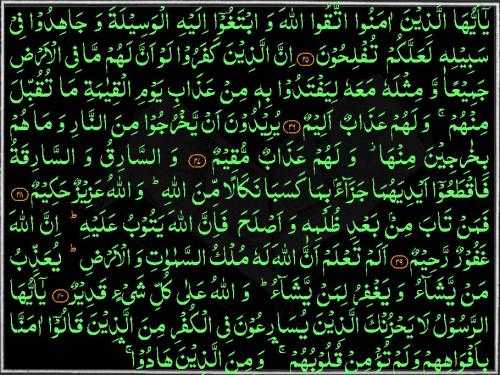 يٰۤاَيُّهَا الَّذِيْنَ اٰمَنُوا اتَّقُوا اللّٰهَ وَ ابْتَغُوْۤا اِلَيْهِ الْوَسِيْلَةَ وَ جَاهِدُوْا فِيْ
سَبِيْلِهٖ لَعَلَّكُمْ تُفْلِحُوْنَ ۳۵ اِنَّ الَّذِيْنَ كَفَرُوْا لَوْ اَنَّ لَهُمْ مَّا فِي الْاَرْضِ
جَمِيْعًا وَّ مِثْلَهٗ مَعَهٗ لِيَفْتَدُوْا بِهٖ مِنْ عَذَابِ يَوْمِ الْقِيٰمَةِ مَا تُقُبِّلَ
مِنْهُمْ ۚ وَ لَهُمْ عَذَابٌ اَلِيْمٌ ۳۶ يُرِيْدُوْنَ اَنْ يَّخْرُجُوْا مِنَ النَّارِ وَ مَا هُمْ
بِخٰرِجِيْنَ مِنْهَا ؗ وَ لَهُمْ عَذَابٌ مُّقِيْمٌ ۳۷ وَ السَّارِقُ وَ السَّارِقَةُ
فَاقْطَعُوْۤا اَيْدِيَهُمَا جَزَآءًۢ بِمَا كَسَبَا نَكَالًا مِّنَ اللّٰهِ ؕ وَ اللّٰهُ عَزِيْزٌ حَكِيْمٌ ۳۸
فَمَنْ تَابَ مِنْۢ بَعْدِ ظُلْمِهٖ وَ اَصْلَحَ فَاِنَّ اللّٰهَ يَتُوْبُ عَلَيْهِ ؕ اِنَّ اللّٰهَ
غَفُوْرٌ رَّحِيْمٌ ۳۹ اَلَمْ تَعْلَمْ اَنَّ اللّٰهَ لَهٗ مُلْكُ السَّمٰوٰتِ وَ الْاَرْضِ ؕ يُعَذِّبُ
مَنْ يَّشَآءُ وَ يَغْفِرُ لِمَنْ يَّشَآءُ ؕ وَ اللّٰهُ عَلٰى كُلِّ شَيْءٍ قَدِيْرٌ ۴۰ يٰۤاَيُّهَا
الرَّسُوْلُ لَا يَحْزُنْكَ الَّذِيْنَ يُسَارِعُوْنَ فِي الْكُفْرِ مِنَ الَّذِيْنَ قَالُوْۤا اٰمَنَّا
بِاَفْوَاهِهِمْ وَ لَمْ تُؤْمِنْ قُلُوْبُهُمْ ۛۚ وَ مِنَ الَّذِيْنَ هَادُوْا ۛۚ